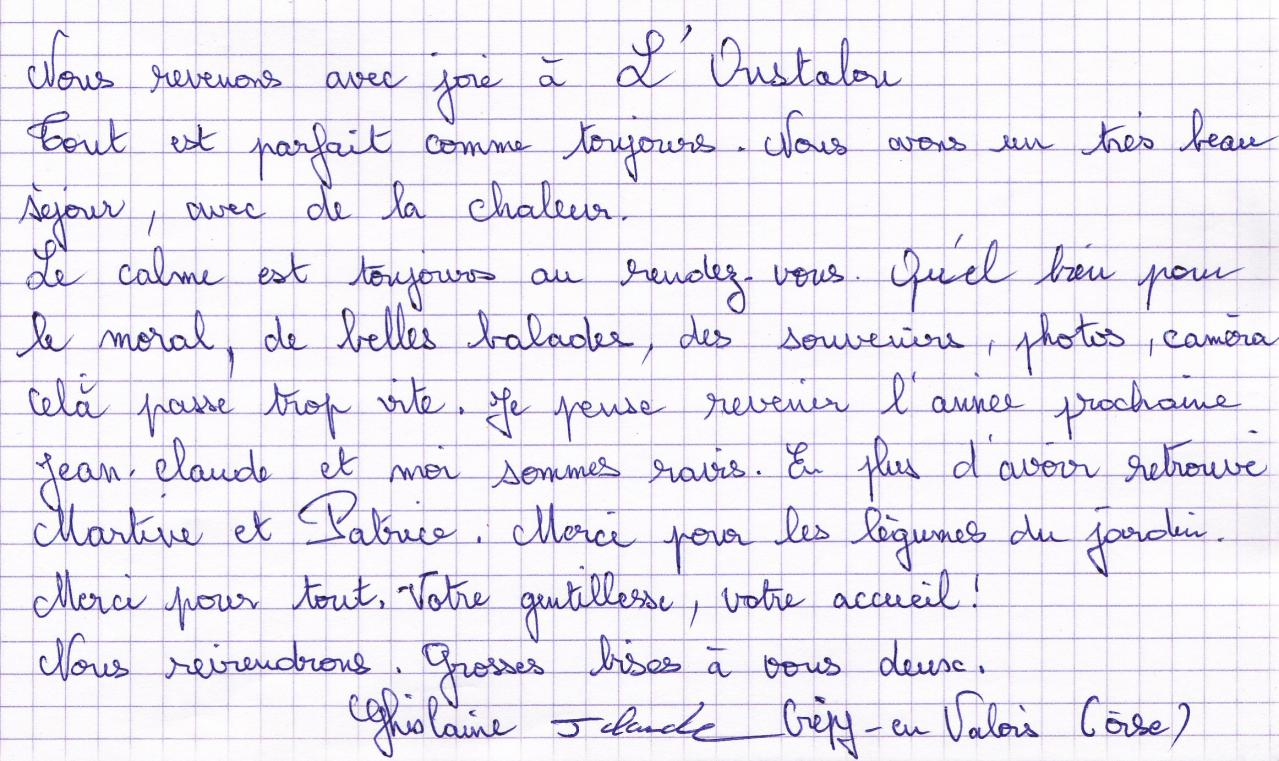 Nous revenons avec joie à L'Oustalou
Tout est parfait comme toujours. Nous avons eu un très beau
séjour, avec de la chaleur.
Le calme est toujours au rendez-vous. Qu'el bien pour
le moral, de belles balades, des souvenirs, photos, caméra
celà passe trop vite. Je pense revenir l'année prochaine
Jean-Claude et moi sommes ravis. En plus d'avoir retrouvé
Martine et Patrice. Merci pour les légumes du jardin.
Merci pour tout. Votre gentillesse, votre accueil !
Nous reviendrons. Grosses bises à vous deux.
Ghislaine J claude Crépy-en Valois (oise)